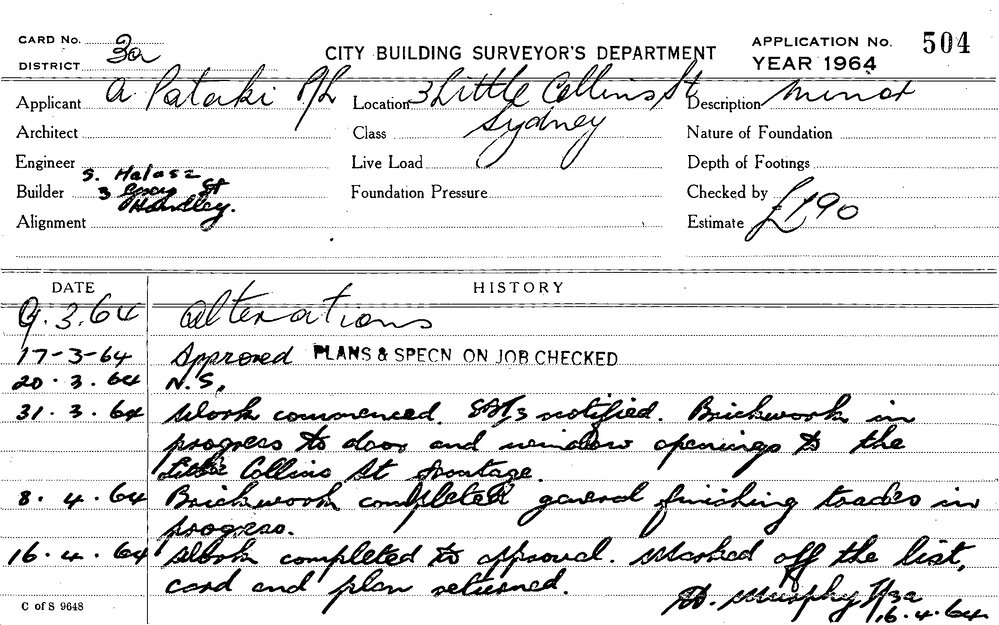 CARD No. 3a
DISTRICT
CITY BUILDING SURVEYOR'S DEPARTMENT
APPLICATION No. 504
YEAR 1964
Applicant A Pataki P/L Location 3 Little Collins St Description minor
Sydney
Architect Class Nature of Foundation
Engineer Live Load Depth of Footings
S. Halasz
Builder 3 St Foundation Pressure Checked by
Handley.
Alignment Estimate £190
DATE HISTORY
9.3.64 Alterations
17-3-64 Approved PLANS & SPECN ON JOB CHECKED
20.3.64 N.S.
31.3.64 Work commenced. notified. Brickwork in
progress to door and window openings to the
Little Collins St frontage.
8.4.64 Brickwork completed general finishing trades in
progress.
16.4.64 Work completed to approval. Marked off the list,
card and plan returned.
C of S 9648
Murphy 3a
16.4.64